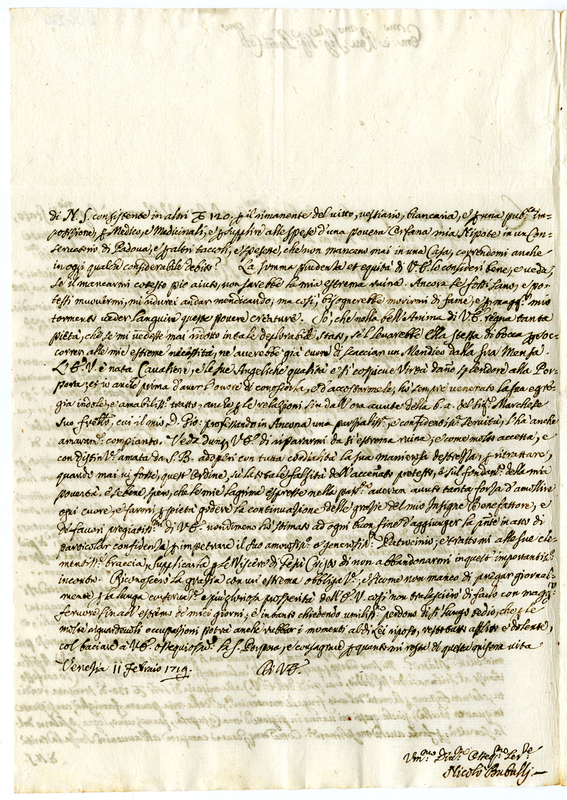 di N. S. consistente in altri 120, p il rimanente del vitto, vestiario, biancaria, e p una
posizione, p Medico, e Medicinali, e p supplir alle spese d'una povera Orfana mia Nipote in un Con-
servatorio di Padova, e p altri taccoli, e spesette, che non mancono mai in una Casa, correndomi anche
in oggi qualche considerabile debito? La somma prudenza et equità di V. E. lo consideri bene, e veda,
se mancarmi cotesto pio aiuto, non sarebbe la mia estrema ruina. Ancora se fossi sano, e po-
tessi muovermi, mi ridurei andar mendicando; ma così, bisognerebbe morirmi di fame, e p maggr mio
tormento veder languire queste povere creature. Sò, che nella bell'Anima di V. E. regna tanta
pietà, che se mi vedesse mai ridotto in tale deplorabile Stato, si leverebbe ella stessa di bocca p soc-
correr alle mie estreme necessità, ne averebbe già cuore di scacciar un Mendico dalla sua Mensa.
L'E. V. è nata Cavaliere, e le sue Angeliche qualità e si cospicue Virtù danno splendore alla Por-
pora, et io anche prima d'aver l'onore di conoscerla, ed'accostarmele, hò sempre venerato la sua egre-
gia indole, e amabili tratti, anche p le relazioni fin dall'ora avute dalla b. a. del Sigr Marchese
suo frello, cui il mio D. Gio: professando in Ancona una parzialiss. e confidentiss. servitù, l'ha anche
amaramte compianto. Veda dunq V. E. di ripararmi da sì estrema ruina, e come molto accetta, e
con distinzne amata da S. B. adoperi con tutta cordialità la sua maniera, destrezza, p ritrattare,
quando mai vi fosse, quest'ordine, sù la totale falsità dell'accennato protesto, e sul fondamto della mia
povertà, e se mai sperai, che le mie lagrime espresse nella avessero avuto tanta forza d'amollire
ogni cuore, e farmi p pietà godere la continuazione delle grazie del mio Insigne Benefattore, e
de favori pregiatissmi di V. E. nondimeno hò stimato ad ogni buon fine d'aggiunger la pnte in atto di
particolar confidenza p impetrare il suo amorosissmo e generosissmo Patrocinio, e trattomi alle sue cle-
mentissme braccia, supplicarla p le Viscere di Gesù Cristo di non abbandonarmi in questo importantissmo
incontro. Riconoscerò la grazia con mia estrema obbligazne, e siccome non manco di pregar giornal-
mente p la lunga conservazne e più gloriosa prosperità dell'E. V. così non tralascierò di farlo con maggr
fervore fin all'estremo de miei giorni; e intanto chiedendo umilissmo perdono di sì lungo tedio, che p le
molte riguardevoli occupazioni potrà anche rubbar i momenti al di Lei riposo, resto tutto afflitto e dolente,
col baciare a V. E. ossequiosamte la S. Porpora, e consagrarle p quanto mi resta di questa misera vita
Venezia 11 Febraio 1719. Di V. E.
Umo Divmo Obbligmo Serre
Nicolò Bubulli